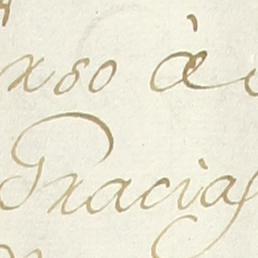 xso à
Gracias